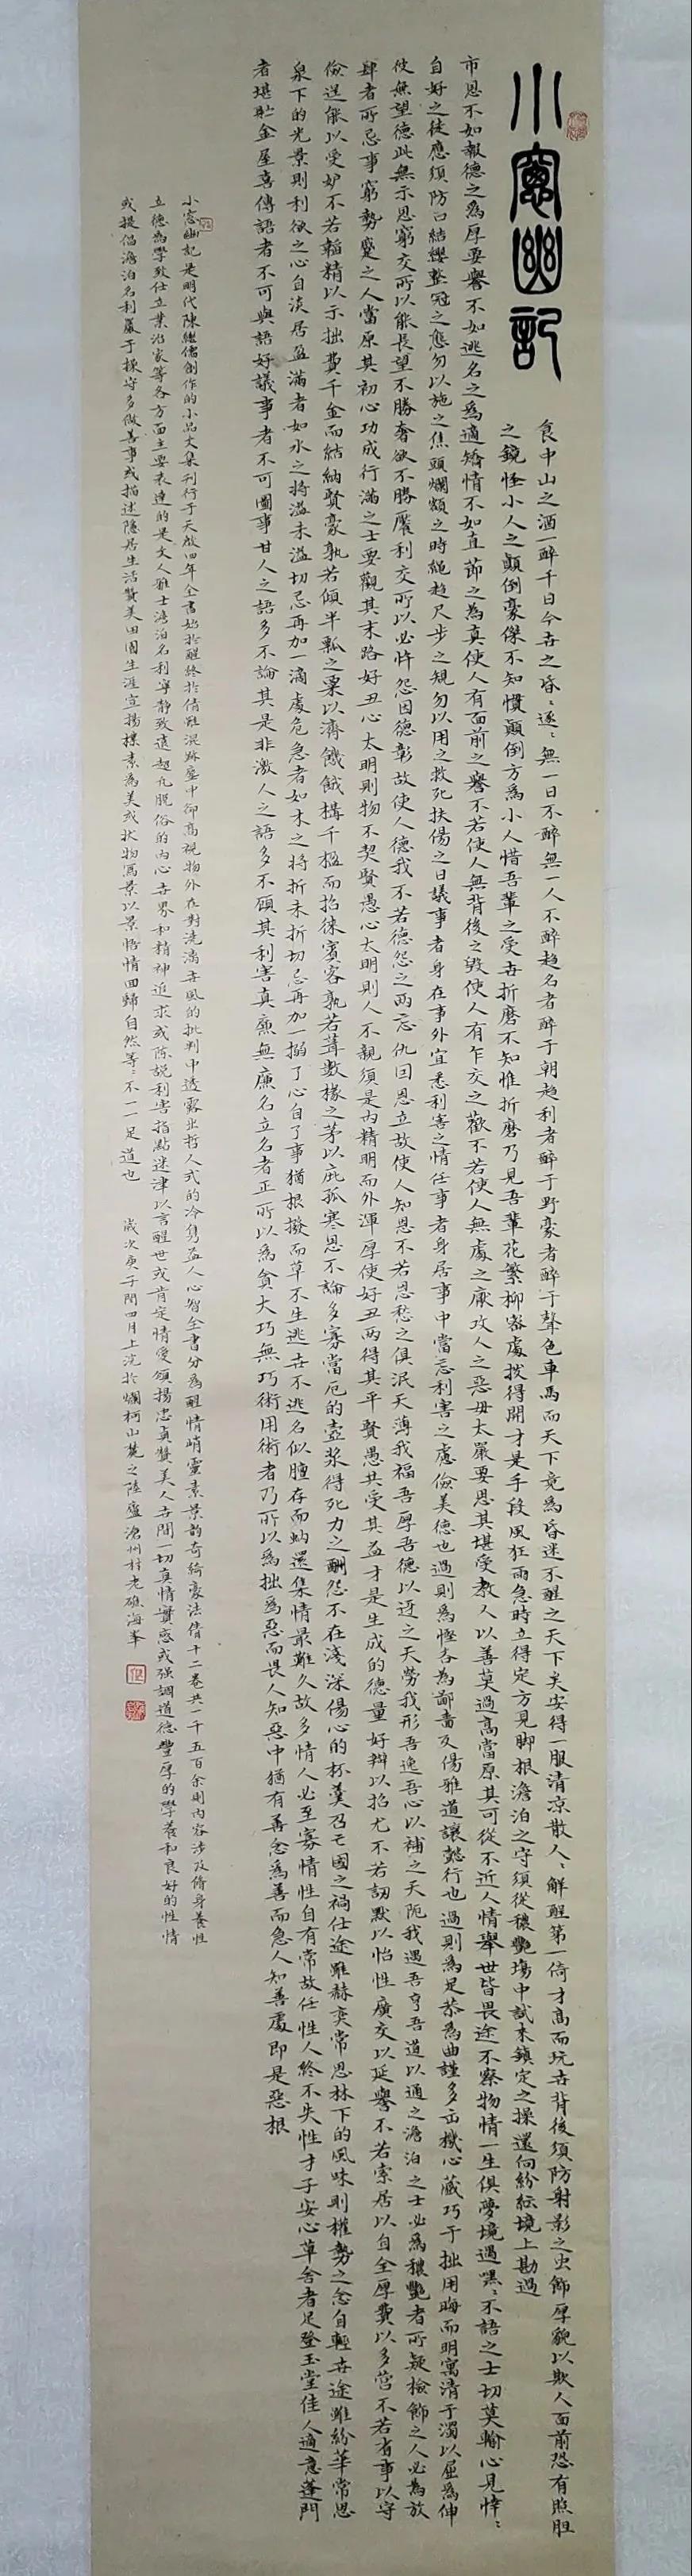 小窗幽記
食中山之酒一醉千日今世之昏〻逐〻無一日不醉無一人不醉趨名者醉于朝趨利者醉于野豪者醉于聲色車馬而天下竟為昏迷不醒之天下矣安得一服清凉散人〻解酲第一倚才高而玩世背後須防射影之虫飾厚貌以欺人面前恐有照胆
之鏡怪小人之顛倒豪傑不知慣顛倒方為小人惜吾輩之受世折磨不知惟折磨乃見吾輩花繁柳密處撥得開才是手段風狂雨急時立得定方見脚根澹泊之守須從穠艷場中試來鎮定之操還向紛紜境上勘過
市恩不如報德之為厚要譽不如逃名之為適矯情不如直節之為真使人有面前之譽不若使人無背後之毀使人有乍交之歡不若使人無處之厭攻人之惡毋太嚴要思其堪受教人以善莫過高當原其可從不近人情舉世皆畏途不察物情一生俱夢境遇嘿〻不語之士切莫輸心見悻〻
自好之徒應須防口結纓整冠之態勿以施之焦頭爛額之時繩趨尺步之規勿以用之救死扶傷之日議事者身在事外宜悉利害之情任事者身居事中當忘利害之慮儉美德也過則為慳吝為鄙嗇反傷雅道讓懿行也過則為足恭為曲謹多出機心藏巧于拙用晦而明寓清于濁以屈為伸
彼無望德此無示恩窮交所以能長望不勝奢欲不勝饜利交所以必忤怨因德彰故使人德我不若德怨之兩忘仇因恩立故使人知恩不若恩愁之俱泯天薄我福吾厚吾德以迓之天勞我形吾逸吾心以補之天阨我遇吾亨吾道以通之澹泊之士必為穠艷者所疑檢飾之人必為放
肆者所忌事窮勢蹙之人當原其初心功成行滿之士要觀其末路好丑心太明則物不契賢愚心太明則人不親須是內精明而外渾厚使好丑两得其平賢愚共受其益才是生成的德量好辯以招尤不若訒默以怡性廣交以延譽不若索居以自全厚費以多營不若省事以守
儉逞能以受妒不若韜精以示拙費千金而結納賢豪孰若傾半瓢之粟以濟饑餓構千楹而招徠賓客孰若葺數椽之茅以庇孤寒恩不論多寡當厄的壺漿得死力之酬怨不在淺深傷心的杯羹召亡國之禍仕途雖赫奕常思林下的風味則權勢之念自輕世途雖紛華常思
泉下的光景則利欲之心自淡居盈滿者如水之將溢未溢切忌再加一滴處危急者如木之將折未折切忌再加一搦了心自了事猶根撥而草不生逃世不逃名似膻存而蚋還集情最難久故多情人必至寡情性自有常故任性人終不失性才子安心草舍者足登玉堂佳人適意蓬門
者堪貯金屋喜傳語者不可與語好議事者不可圖事甘人之語多不論其是非激人之語多不顧其利害真廉無廉名立名者正所以為貪大巧無巧術用術者乃所以為拙為惡而畏人知惡中猶有善念為善而急人知善處即是惡根
小窗幽記是明代陳繼儒創作的小品文集刊行于天啟四年全書始於醒終於倩雖混跡塵中卻高視物外在對澆漓世風的批判中透露出哲人式的冷雋益人心智全書分為醒情峭靈素景韵奇綺豪法倩十二卷共一千五百余則內容涉及修身養性
立德為學致仕立業治家等各方面主要表達的是文人雅士澹泊名利寧靜致遠超凡脱俗的內心世界和精神追求或陈説利害指點迷津以言醒世或肯定情愛頌揚忠貞贊美人世間一切真情實感或强調道德豐厚的學養和良好的性情
或提倡澹泊名利嚴于操守多做善事或描述隱居生活贊美田園生涯宣揚樸素為美或状物寫景以景悟情回歸自然等〻不一一足道也 歲次庚子閏四月上浣於爛柯山麓之陸廬滄州村老碓海峯